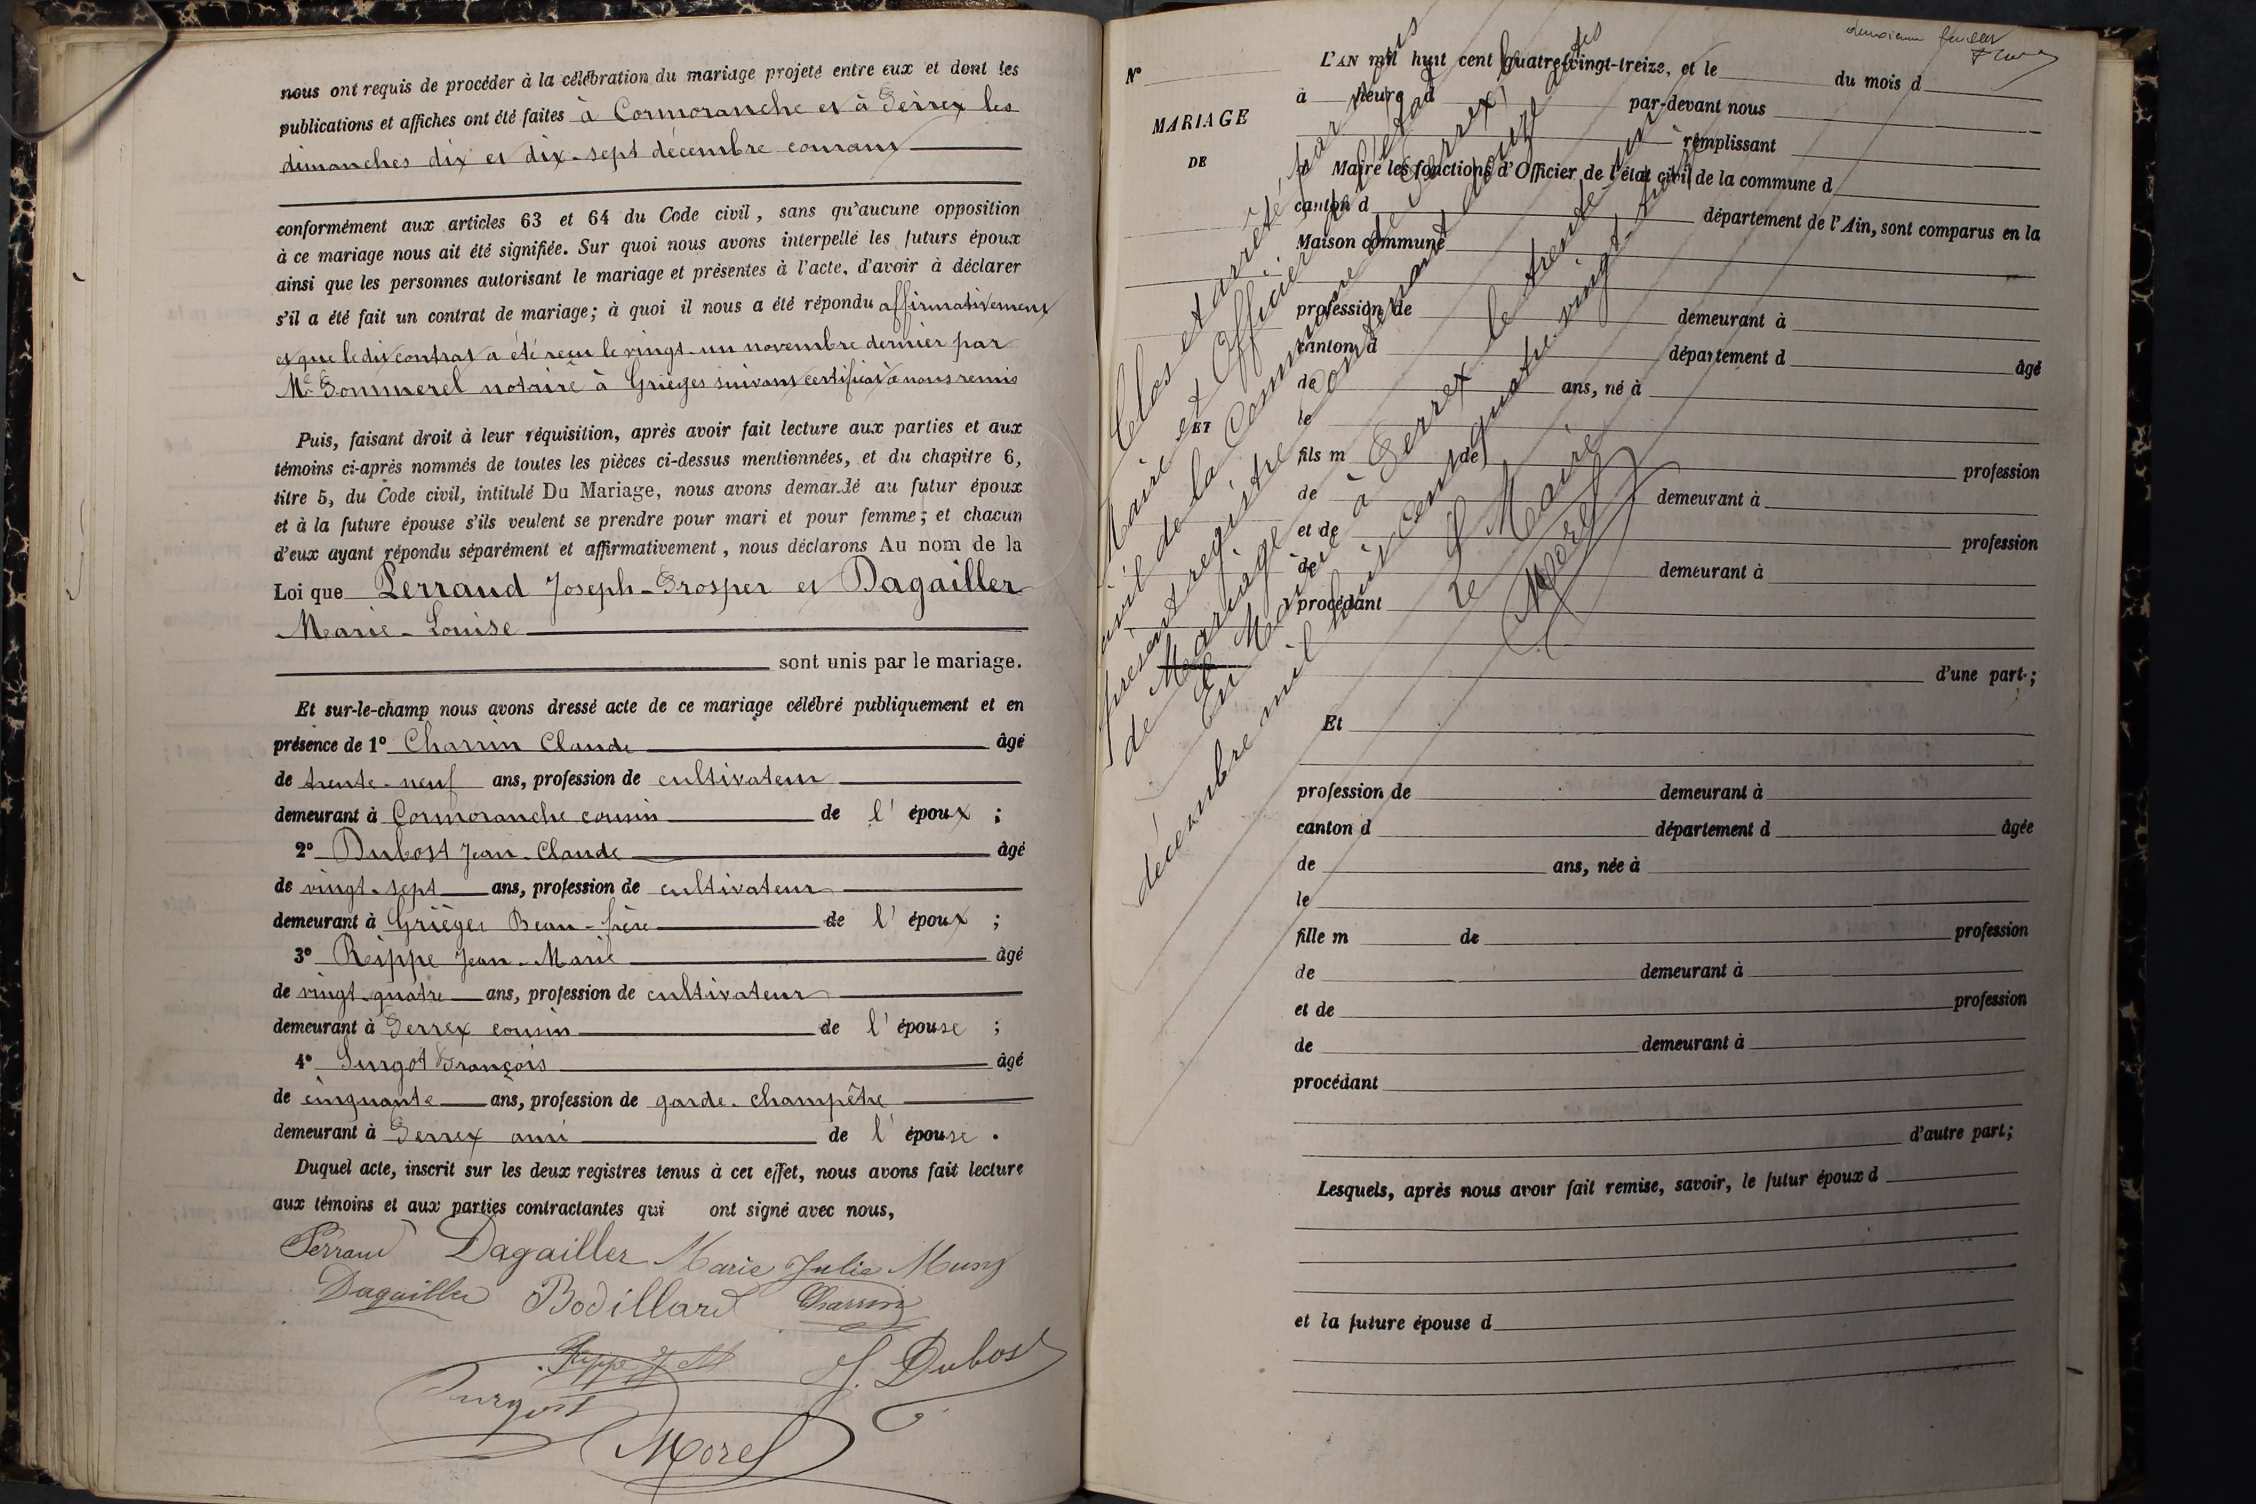 nous ont requis de procéder à la célébration du mariage projeté entre eux et dont les
publications et affiches ont été faites à Cormoranche et à Perrex les
dimanches dix et dix-sept décembre courant
conformément aux articles 63 et 64 du Code civil, sans qu'aucune opposition
à ce mariage nous ait été signifiée. Sur quoi nous avons interpellé les futurs époux
ainsi que les personnes autorisant le mariage et présentes à l'acte, d'avoir à déclarer
s'il a été fait un contrat de mariage; à quoi il nous a été répondu affirmativement
et que le dit contrat a été reçu le vingt-un novembre dernier par
Me Pommerel notaire à Grièges suivant certificat à nous remis
Puis, faisant droit à leur réquisition, après avoir fait lecture aux parties et aux
témoins ci-après nommés de toutes les pièces ci-dessus mentionnées, et du chapitre 6,
titre 5, du Code civil, intitulé Du Mariage, nous avons demandé au futur époux
et à la future épouse s'ils veulent se prendre pour mari et pour femme; et chacun
d'eux ayant répondu séparément et affirmativement, nous déclarons Au nom de la
Loi que Perraud Joseph-Prosper et Dagailler
Marie-Louise
sont unis par le mariage.
Et sur-le-champ nous avons dressé acte de ce mariage célébré publiquement et en
présence de 1° Charrin Claude âgé
de trente-neuf ans, profession de cultivateur
demeurant à Cormoranche cousin de l'époux ;
2° Dubost Jean-Claude âgé
de vingt-sept ans, profession de cultivateur
demeurant à Grièges Beau-frère de l'époux ;
3° Rippe Jean-Marie âgé
de vingt-quatre ans, profession de cultivateur
demeurant à Perrex cousin de l'épouse ;
4° Purgot François âgé
de cinquante ans, profession de garde-champêtre
demeurant à Perrex ami de l'épouse .
Duquel acte, inscrit sur les deux registres tenus à cet effet, nous avons fait lecture
aux témoins et aux parties contractantes qui ont signé avec nous,
Perraud Dagailler Marie Julie
Dagailler Bodillard Charrin
Rippe J M J. Dubost
Purgot
Morel
N°
MARIAGE
DE
ET
L'AN mil huit cent quatre-vingt-treize, et le du mois d
à heure d par-devant nous
remplissant
Maire les fonctions d'Officier de l'état civil de la commune d
canton d département de l'Ain, sont comparus en la
Maison commune
profession de demeurant à
canton d département d âgé
de ans, né à
le
fils m de profession
de demeurant à
et de profession
de demeurant à
procédant
d'une part ;
Et
profession de demeurant à
canton d département d âgée
de ans, née à
le
fille m de profession
de demeurant à
et de profession
de demeurant à
procédant
d'autre part ;
Lesquels, après nous avoir fait remise, savoir, le futur époux d
et la future épouse d
Clos et arrêté par nous
Maire et Officier de l'état
civil de la Commune de Perrex, le
présent registre contenant douze actes
de Mariage
En Mairie à Perrex le trente-un
décembre mil huit cent quatre-vingt-treize
Le Maire
Morel